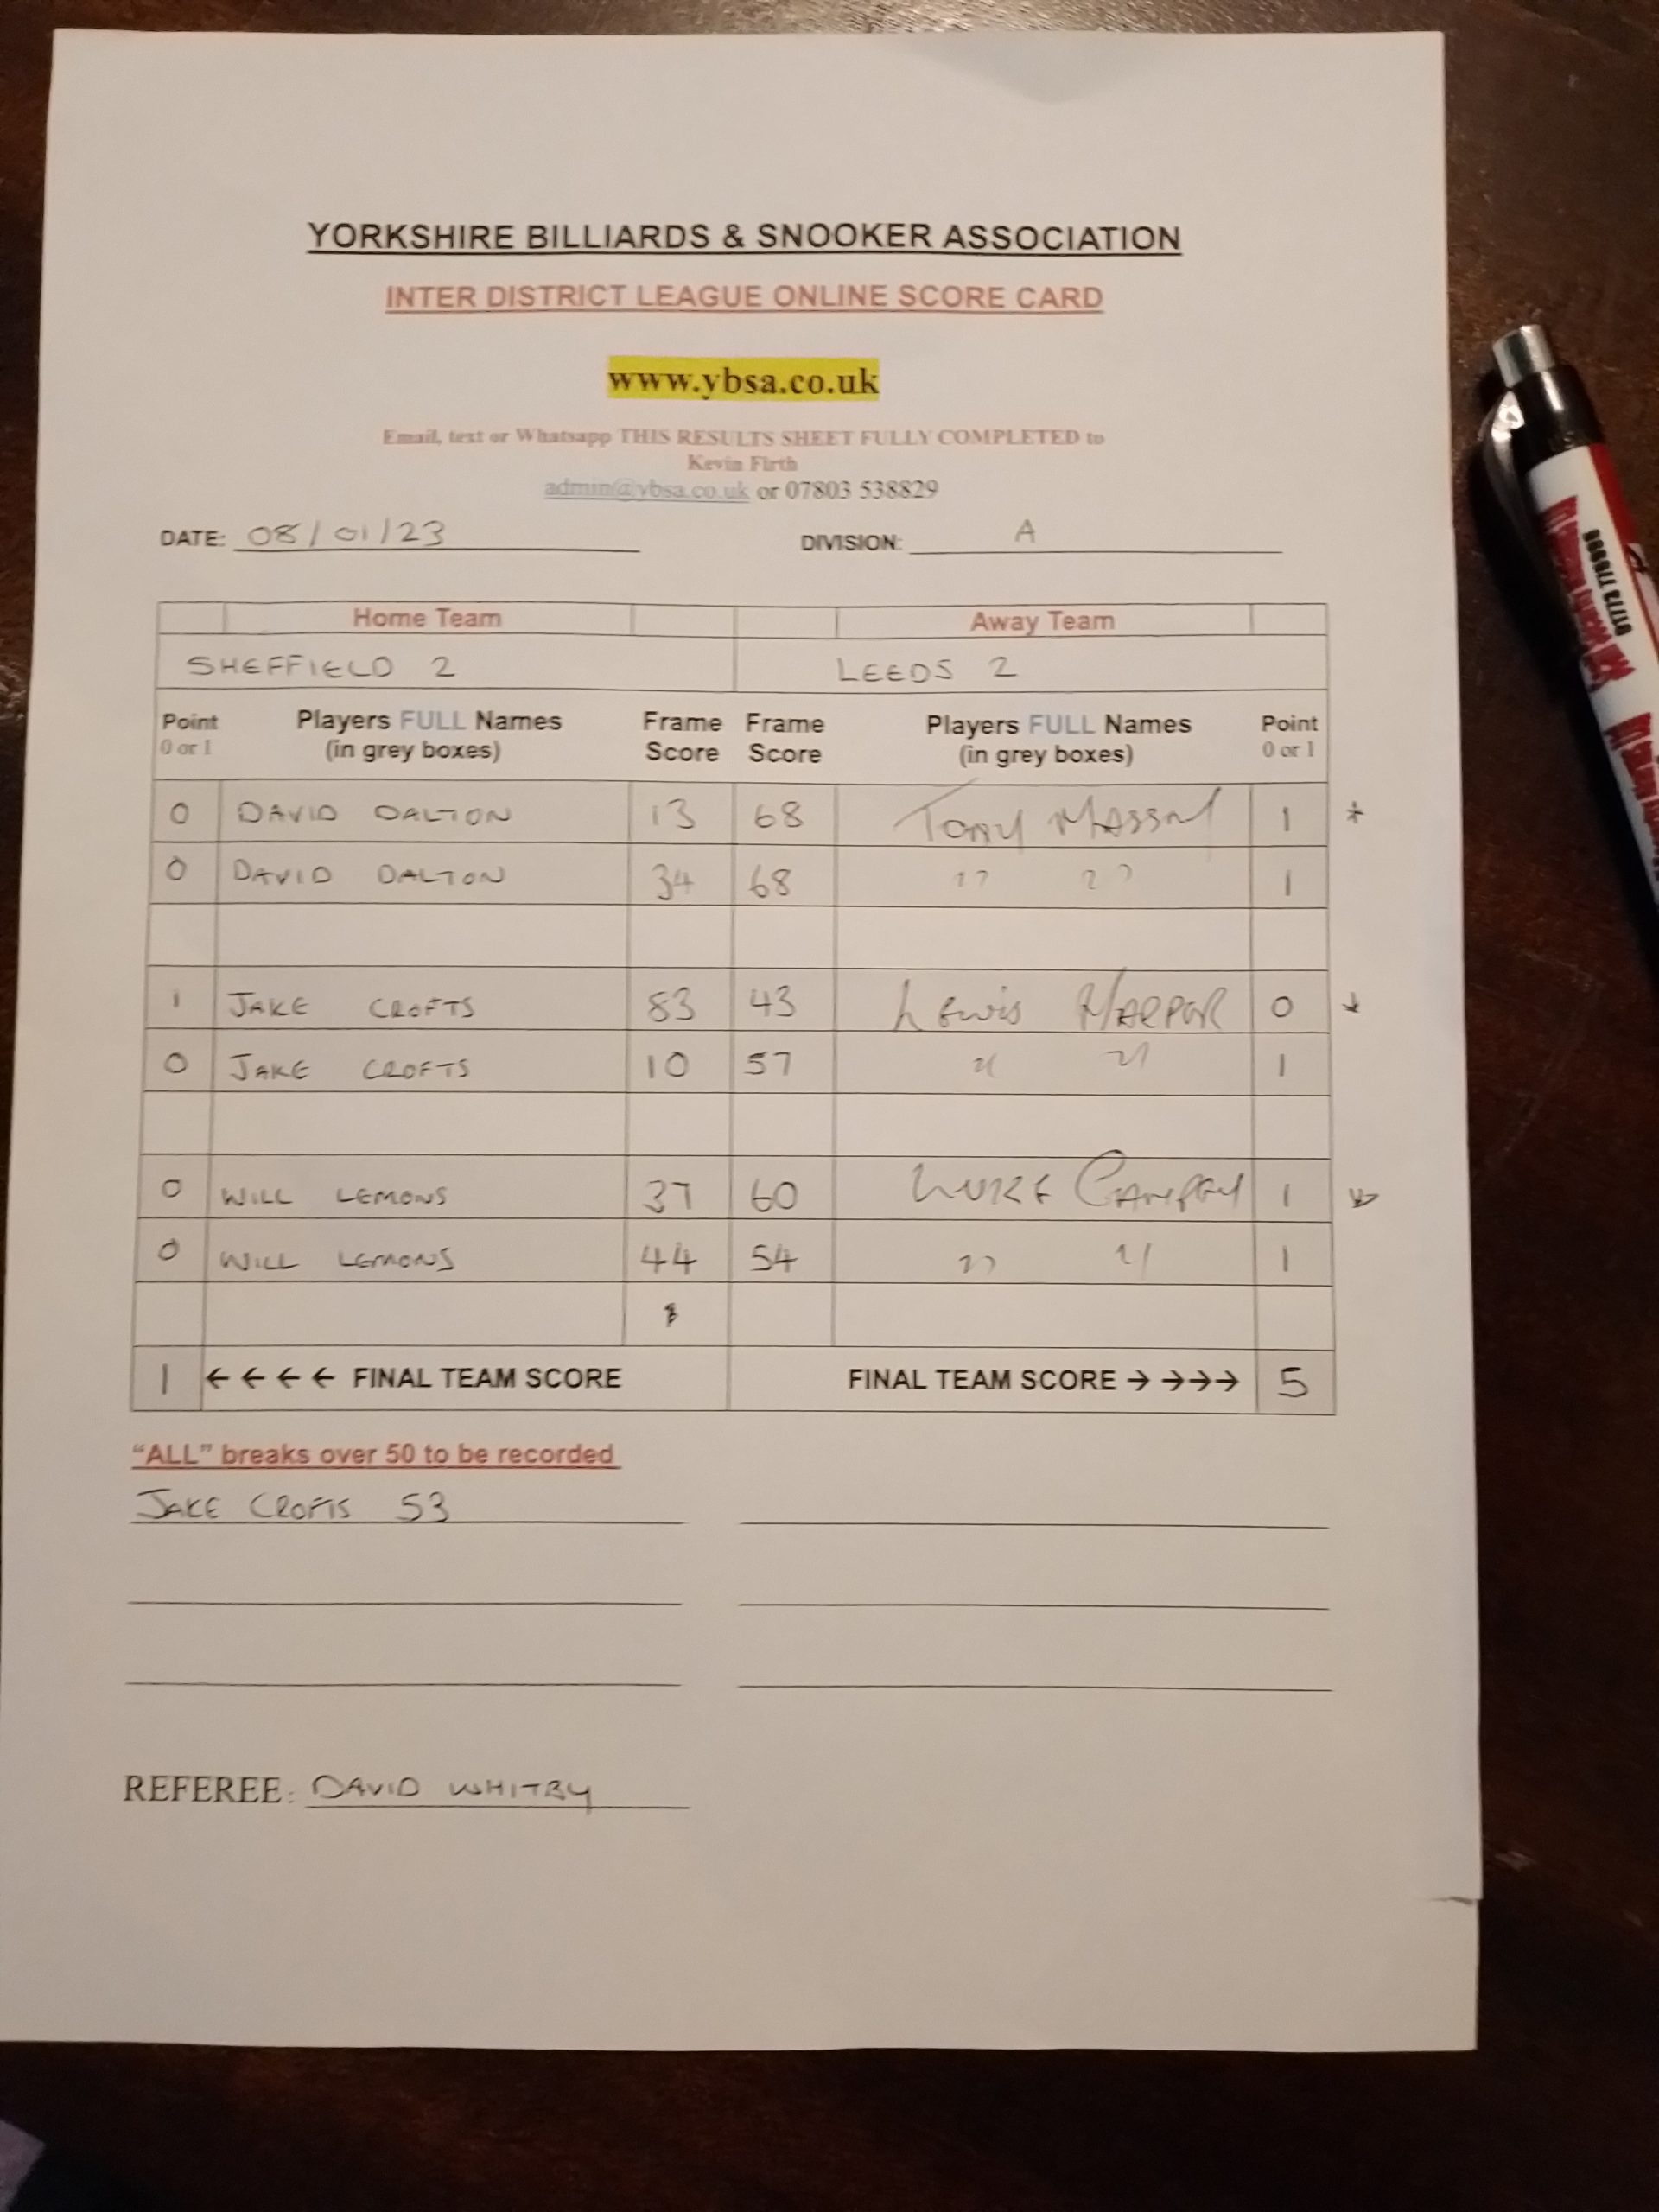 YORKSHIRE BILLIARDS & SNOOKER ASSOCIATION
INTER DISTRICT LEAGUE ONLINE SCORE CARD
www.ybsa.co.uk
Email, text or Whatsapp THIS RESULTS SHEET FULLY COMPLETED to
Kevin Firth
admin@ybsa.co.uk or 07803 538829
DATE: 08/01/23 DIVISION: A
Home Team Away Team
SHEFFIELD 2 LEEDS 2
Point Players FULL Names Frame Frame Players FULL Names Point
0 or 1 (in grey boxes) Score Score (in grey boxes) 0 or 1
0 DAVID DALTON 13 68 TONY 1 *
0 DAVID DALTON 34 68 " " 1
1 JAKE CROFTS 83 43 Lewis 0
0 JAKE CROFTS 10 57 " " 1
0 WILL LEMONS 37 60 LUKE 1
0 WILL LEMONS 44 54 " " 1
1 ← ← ← ← FINAL TEAM SCORE FINAL TEAM SCORE → → → → 5
“ALL” breaks over 50 to be recorded
JAKE CROFTS 53
REFEREE: DAVID WHITBY